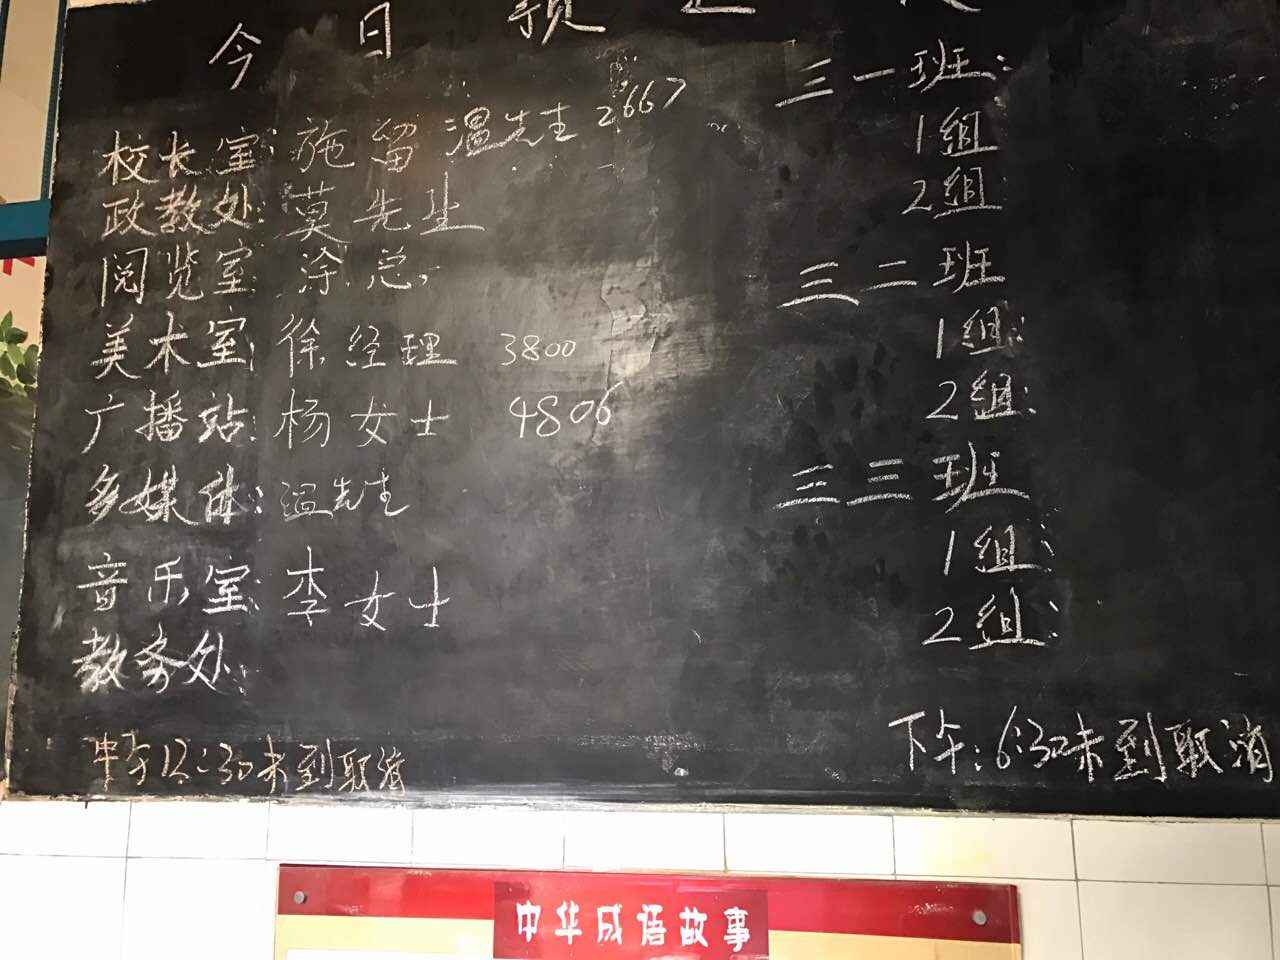 今日预
校长室: 施留 温先生 2667
政教处: 莫先生
阅览室: 涂总
美术室: 徐经理 3800
广播站: 杨女士 4806
多媒体: 温先生
音乐室: 李女士
教务处:
中午12:30未到取消
三一班:
1组
2组
三二班
1组:
2组:
三三班
1组:
2组:
下午:6:30未到取消
中华成语故事